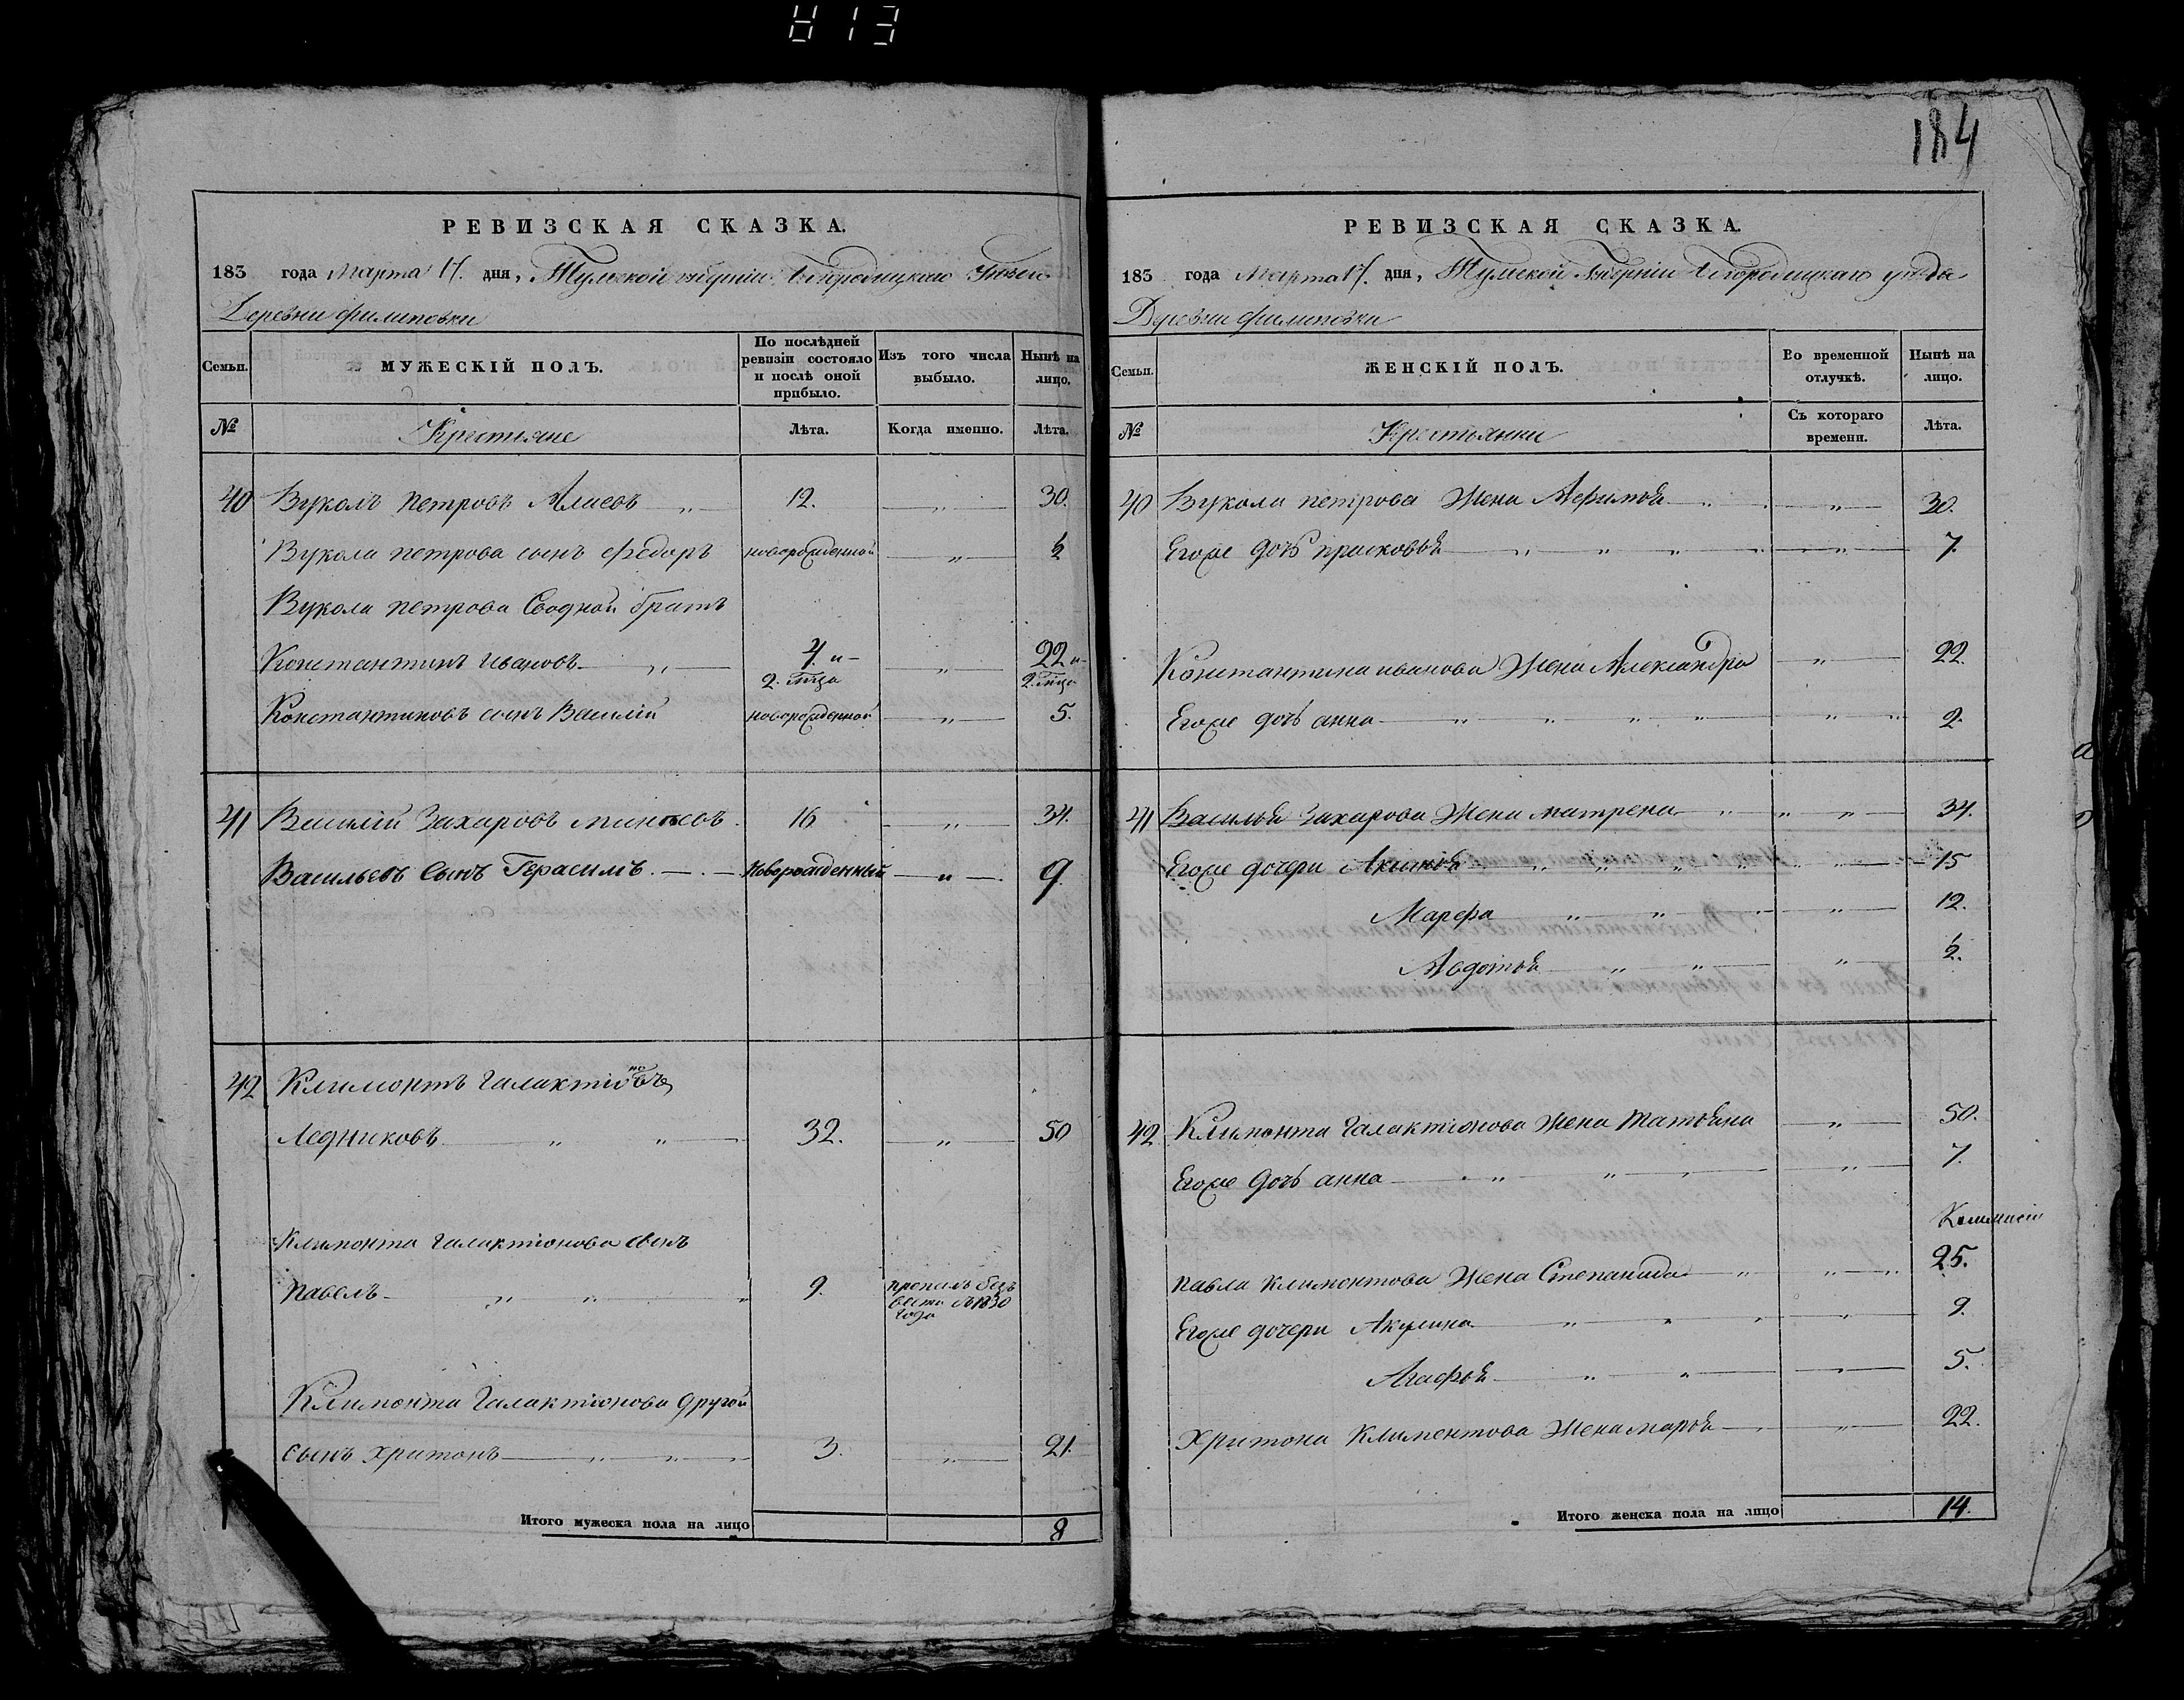 813
184
РЕВИЗСКАЯ СКАЗКА.
183 года Марта 17. дня, Тульской губернии Богородицкаго Уезда
Деревни Филиповки
Семьи. МУЖЕСКІЙ ПОЛЪ. По послѣдней ревизіи состояло и послѣ оной прибыло. Изъ того числа выбыло. Нынѣ на лицо.
№ Крестьяне Лѣта. Когда именно. Лѣта.
40 Вуколъ петровъ „ 12. „ 30.
Вукола петрова сынъ Федоръ новорожденной „ ½
Вукола петрова Сводной братъ
Константинъ Ивановъ „ 4. и 2. мца „ 22 и 2. мца
Константиновъ сынъ Василій новорожденной „ 5.
41 Василій Захаровъ 16 „ 34.
Васильевъ Сынъ Герасимъ. Новорожденный „ 9.
42 Климонтъ Галактіоновъ
Ледниковъ „ „ 32. „ 50
Климонта Галактіонова сынъ
Павелъ „ „ „ 9. пропалъ безъ вести въ 1830 Года
Климонта Галактіонова другой
сынъ Хритонъ „ „ „ 3. „ 21.
Итого мужеска пола на лицо 8
РЕВИЗСКАЯ СКАЗКА.
183 года Марта 17. дня, Тульской Губерніи Богородицкаго уезда
Деревни Филиповки
Семьи. ЖЕНСКІЙ ПОЛЪ. Во временной отлучкѣ. Нынѣ на лицо.
№ Крестьянки Съ котораго времени. Лѣта.
40 Вукола петрова Жена Афимья „ „ 30.
Егоже дочь прасковья „ „ „ „ „ 7.
Константина иванова Жена Александра „ 22.
Егоже дочь анна „ „ „ „ „ „ 2.
41 Василья Захарова Жена матрена „ „ „ 34.
Егоже дочери „ „ „ „ „ 15
Марфа „ „ „ „ 12.
Авдотья „ „ „ ½.
42 Климонта Галактіонова жена Татьяна „ 50.
Егоже дочь анна „ „ „ „ 7.
павла климентова Жена Степанида „ „ „ 25.
Егоже дочери Акулина „ „ „ „ 9.
Агафья „ „ „ 5.
Хритона Климентова Жена марья „ „ 22.
Итого женска пола на лицо 14.